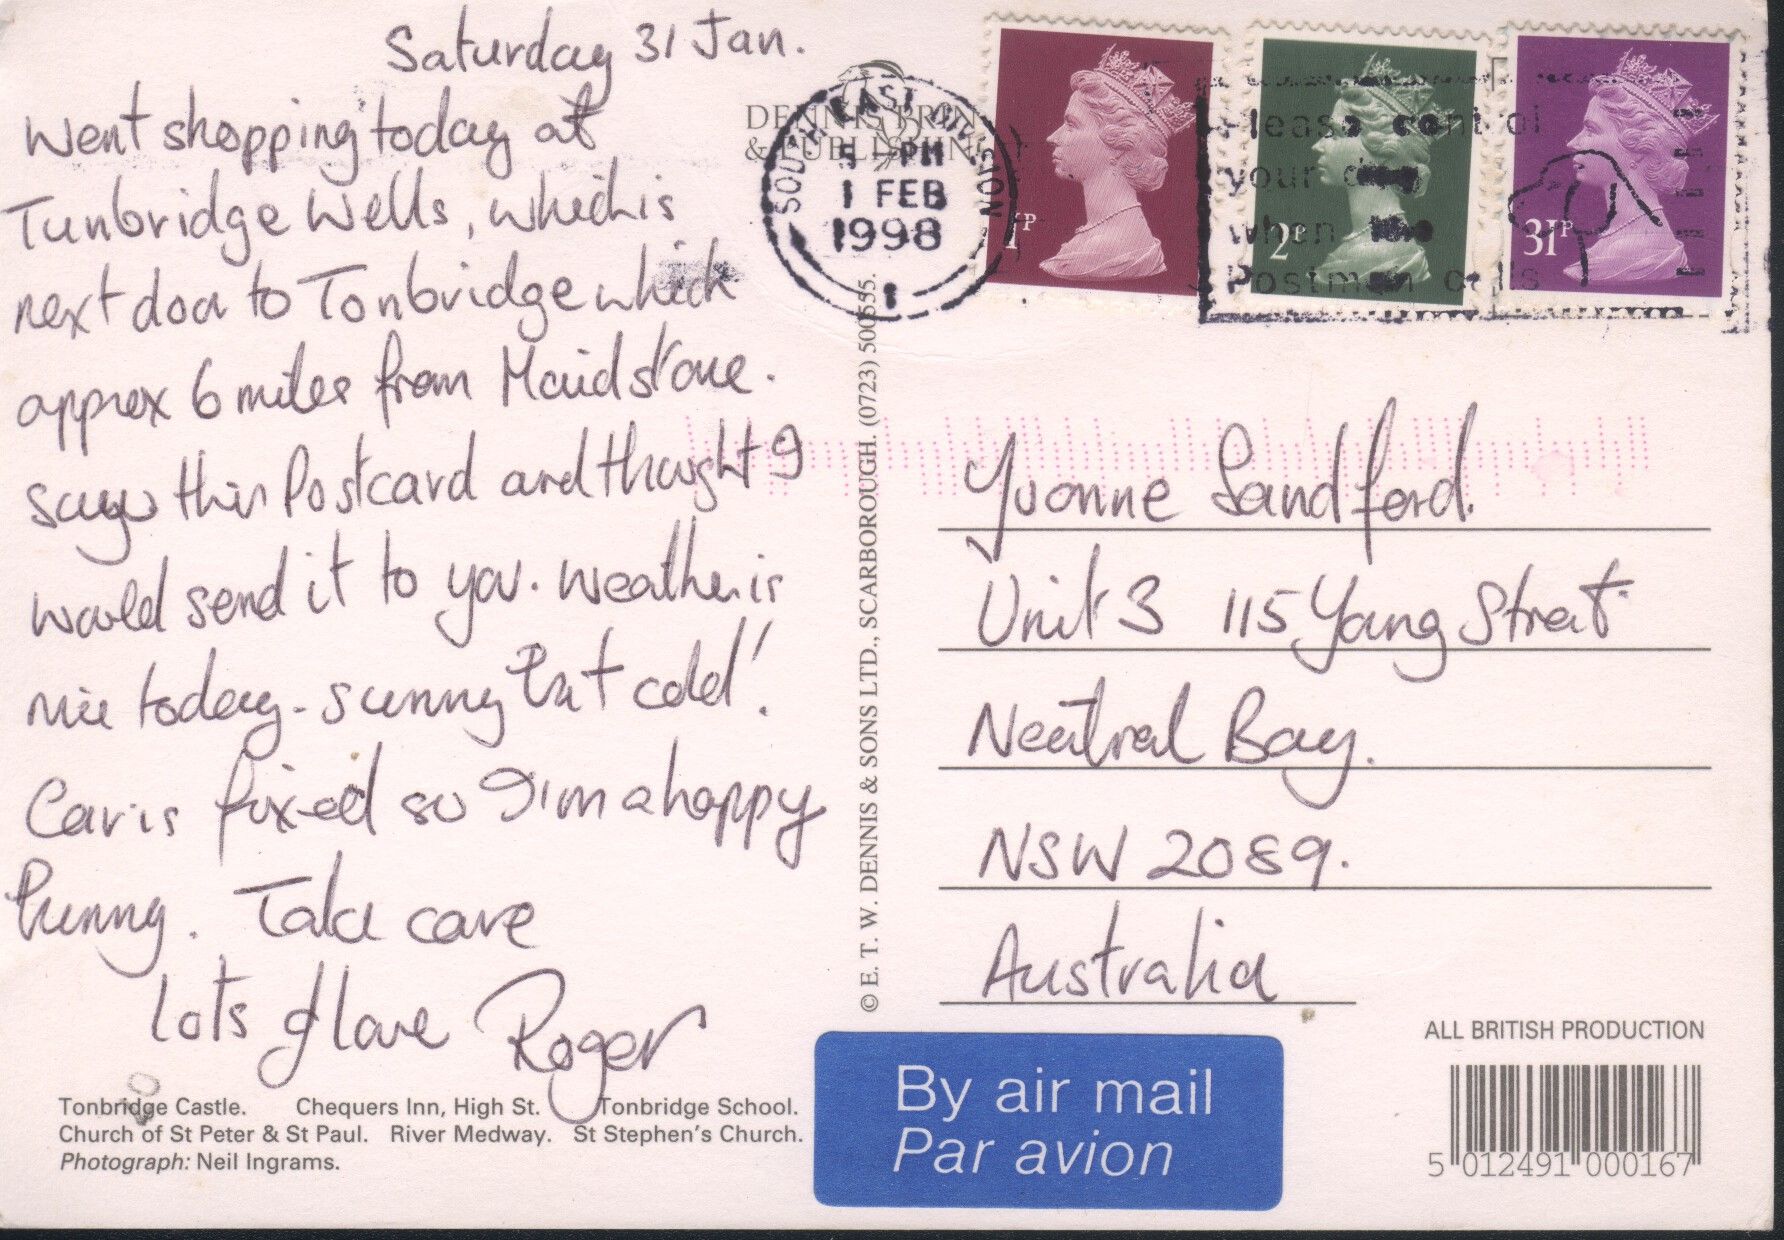 Saturday 31 Jan.
Went shopping today at
Tunbridge Wells, which is
next door to Tonbridge which
approx 6 miles from Maidstone.
saw this Postcard and thought I
would send it to you. Weather is
nice today - sunny but cold!
Car is fixed so I'm a happy
bunny. Take care
Lots of love Roger
Tonbridge Castle. Chequers Inn, High St. Tonbridge School.
Church of St Peter & St Paul. River Medway. St Stephen's Church.
Photograph: Neil Ingrams.
DENNIS PRIN
& PUBLISHIN
© E. T. W. DENNIS & SONS LTD., SCARBOROUGH. (0723) 500555.
SOUTH EAST DIVISION
5 PM
1 FEB
1998
1
1P
2P
31P
Please control
your dog
when the
Postman calls
Yvonne Sandford.
Unit 3 115 Young Street
Neutral Bay.
NSW 2089.
Australia
By air mail
Par avion
ALL BRITISH PRODUCTION
5 012491 000167